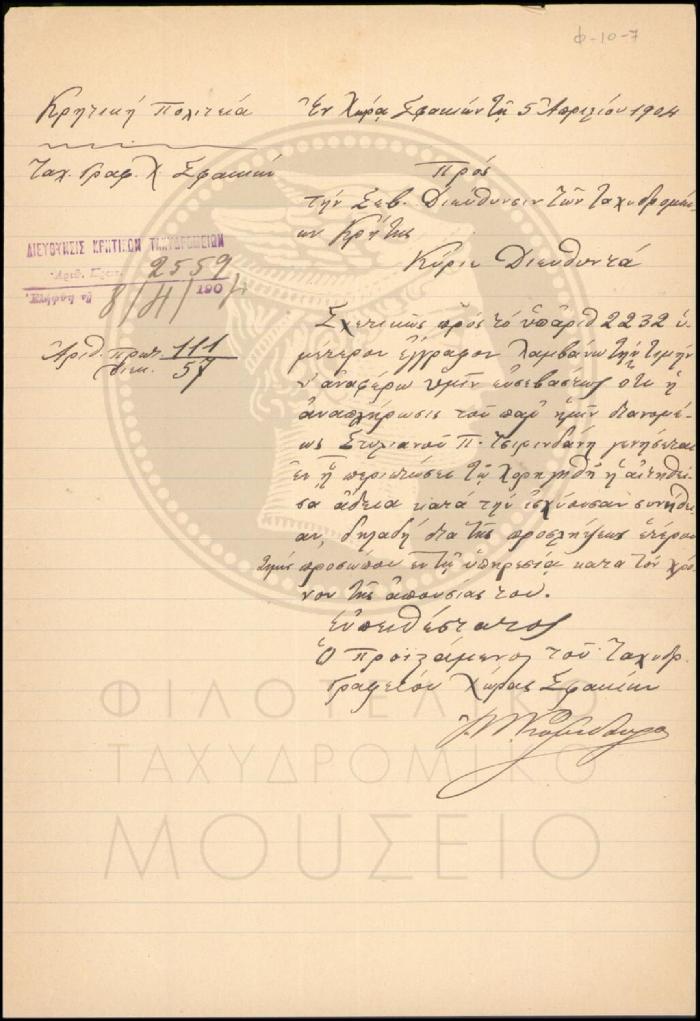 Φ-10-7
Κρητική Πολιτεία
Ἐν Χώρᾳ Σφακίων τῇ 5 Ἀπριλίου 1904
Ταχ. Γραφ. Χ. Σφακίων
Πρός
τὴν Σεβ. Διεύθυνσιν τῶν Ταχυδρομεί
ων Κρήτης
Κύριε Διευθυντά
ΔΙΕΥΘΥΝΣΙΣ ΚΡΗΤΙΚΩΝ ΤΑΧΥΔΡΟΜΕΙΩΝ
Ἀριθ. Πρωτ. 2559
Ἐλήφθη τῇ 8/4/1904
Ἀριθ. πρωτ. 111
διεκ. 57
Σχετικῶς πρὸς τὸ ὑπ' ἀριθ 2232 ὑ
μέτερον ἔγγραφον λαμβάνω τὴν τιμὴν
ν' ἀναφέρω ὑμῖν εὐσεβάστως ὅτι ἡ
ἀναπλήρωσις τοῦ παρ' ἡμῖν διανομέ
ως Στυλιανοῦ Π. γενήσεται
ἐν ᾗ περιπτώσει τῷ χορηγηθῇ ἡ αἰτηθεῖ
σα ἄδεια κατὰ τὴν ἰσχύουσαν συνήθει
αν, δηλαδὴ διὰ τῆς προσλήψεως ἑτέρου
προσώπου ἐν τῇ ὑπηρεσίᾳ κατὰ τὸν χρό
νον τῆς ἀπουσίας του.
Εὐπειθέστατος
Ὁ Προϊστάμενος τοῦ Ταχυδρ.
Γραφείου Χώρας Σφακίων
ΦΙΛΟΤΕΛΙΚΟ
ΤΑΧΥΔΡΟΜΙΚΟ
ΜΟΥΣΕΙΟ